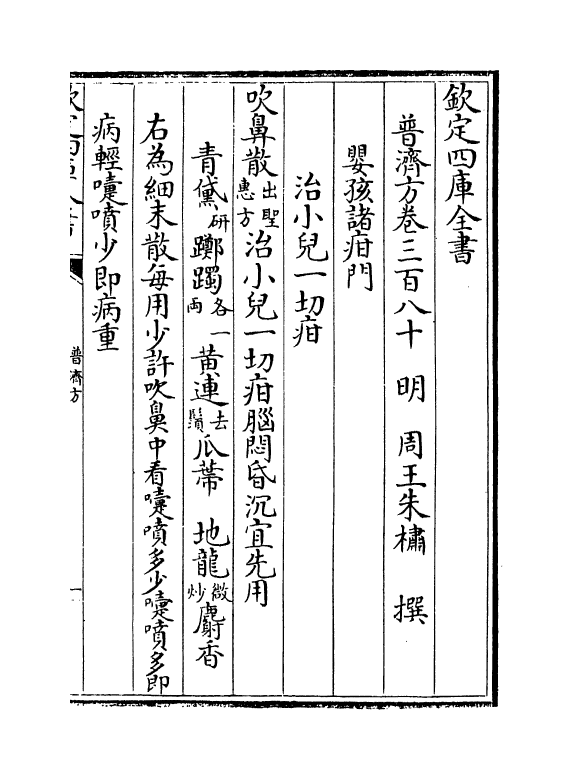 欽定四庫全書
普濟方卷三百八十 明 周王朱橚 撰
嬰孩諸疳門
治小兒一切疳
吹鼻散出聖惠方治小兒一切疳腦悶昏沉宜先用
青黛研躑躅各一兩黄連去鬚瓜蔕 地龍微炒麝香
右為細末散每用少許吹鼻中看嚏噴多少嚏噴多即
病輕嚏噴少即病重
普濟方
一